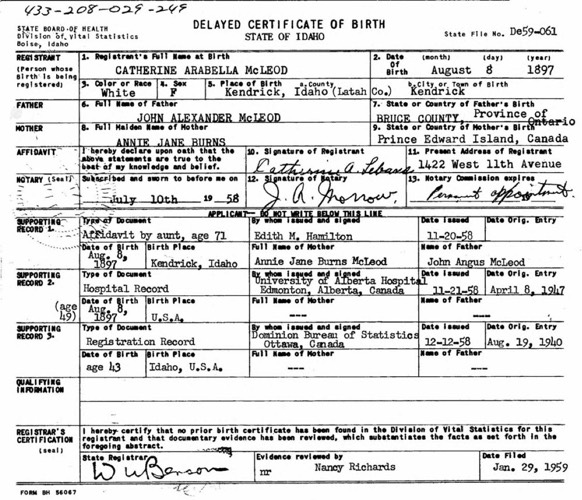 433-208-029-249
DELAYED CERTIFICATE OF BIRTH
STATE BOARD OF HEALTH
Division of Vital Statistics
Boise, Idaho
STATE OF IDAHO
State File No. De59-061
REGISTRANT
(Person whose Birth is being registered)
1. Registrant's Full Name at Birth
CATHERINE ARABELLA McLEOD
2. Date Of Birth (month) (day) (year)
August 8 1897
3. Color or Race
White
4. Sex
F
5. Place of Birth a. County
Kendrick, Idaho (Latah Co.)
b. City or Town of Birth
Kendrick
FATHER
6. Full Name of Father
JOHN ALEXANDER McLEOD
7. State or Country of Father's Birth
BRUCE COUNTY, Province of Ontario
MOTHER
8. Full Maiden Name of Mother
ANNIE JANE BURNS
9. State or Country of Mother's Birth
Prince Edward Island, Canada
AFFIDAVIT
I hereby declare upon oath that the above statements are true to the best of my knowledge and belief.
10. Signature of Registrant
Catherine A.
11. Present Address of Registrant
1422 West 11th Avenue
NOTARY (Seal)
Subscribed and sworn to before me on
July 10th 19 58
12. Signature of Notary
J. A. Morrow
13. Notary Commission expires
Permanent appointment
APPLICANT- DO NOT WRITE BELOW THIS LINE
SUPPORTING RECORD 1.
Type of Document
Affidavit by aunt, age 71
By whom issued and signed
Edith M. Hamilton
Date Issued
11-20-58
Date Orig. Entry
Date of Birth
Aug. 8, 1897
Birth Place
Kendrick, Idaho
Full Name of Mother
Annie Jane Burns McLeod
Name of Father
John Angus McLeod
SUPPORTING RECORD 2.
(age 49)
Type of Document
Hospital Record
By whom issued and signed
University of Alberta Hospital
Edmonton, Alberta, Canada
Date Issued
11-21-58
Date Orig. Entry
April 8, 1947
Date of Birth
Aug. 8, 1897
Birth Place
U.S.A.
Full Name of Mother
---
Name of Father
---
SUPPORTING RECORD 3.
Type of Document
Registration Record
By whom issued and signed
Dominion Bureau of Statistics
Ottawa, Canada
Date Issued
12-12-58
Date Orig. Entry
Aug. 19, 1940
Date of Birth
age 43
Birth Place
Idaho, U.S.A.
Full Name of Mother
---
Name of Father
---
QUALIFYING INFORMATION
REGISTRAR'S CERTIFICATION
(seal)
I hereby certify that no prior birth certificate has been found in the Division of Vital Statistics for this
registrant and that documentary evidence has been reviewed, which substantiates the facts as set forth in the
foregoing abstract.
State Registrar
W W Benson
Evidence reviewed by
nr Nancy Richards
Date Filed
Jan. 29, 1959
FORM BH 56067